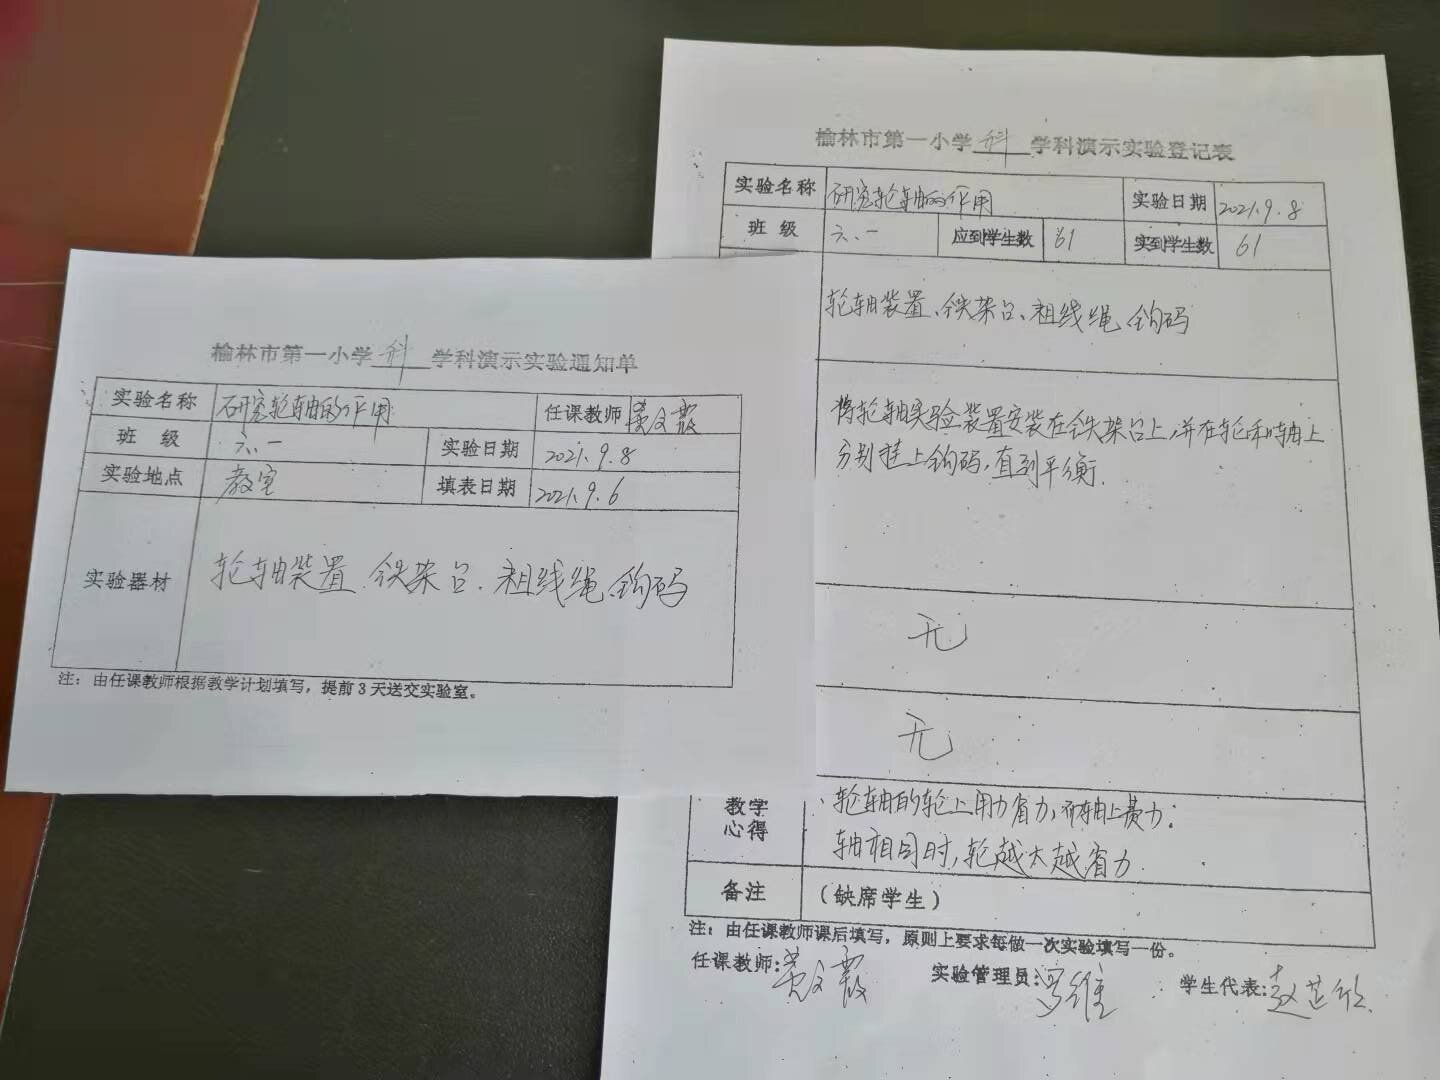 榆林市第一小学 科 学科演示实验通知单
实验名称 研究轮轴的作用 任课教师
班 级 六.一 实验日期 2021.9.8
实验地点 教室 填表日期 2021.9.6
实验器材 轮轴装置.铁架台.粗线绳.钩码
注:由任课教师根据教学计划填写,提前3天送交实验室。
榆林市第一小学 科 学科演示实验登记表
实验名称 研究轮轴的作用 实验日期 2021.9.8
班 级 六.一 应到学生数 61 实到学生数 61
轮轴装置、铁架台、粗线绳、钩码
将轮轴实验装置安装在铁架台上,并在轮和轴上
分别挂上钩码,直到平衡.
无
无
教学 轮轴的轮上用力省力,而轴上费力;
心得 轴相同时,轮越大越省力.
备注 (缺席学生)
注:由任课教师课后填写,原则上要求每做一次实验填写一份。
任课教师: 实验管理员:罗维 学生代表:赵芷欣